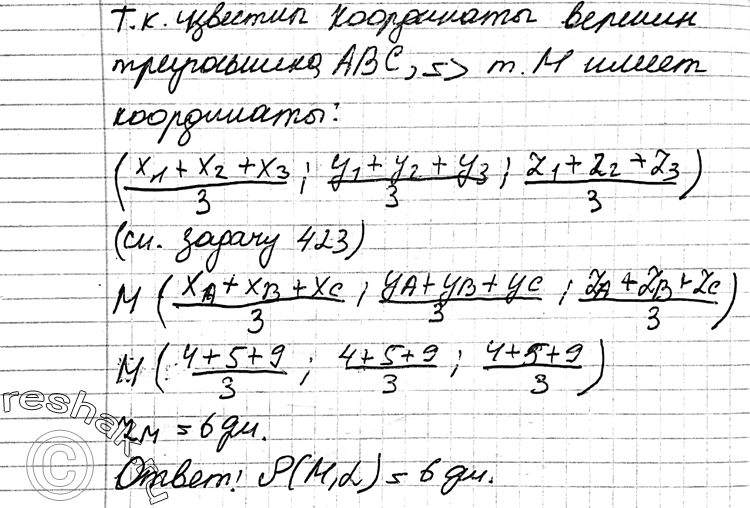 Т.к. известны координаты вершин
треугольника ABC, => т. M имеет
координаты:
(x₁ + x₂ + x₃ / 3 ; y₁ + y₂ + y₃ / 3 ; z₁ + z₂ + z₃ / 3)
(см. задачу 423)
M (xA + xB + xC / 3 ; yA + yB + yC / 3 ; zA + zB + zC / 3)
M (4+5+9 / 3 ; 4+5+9 / 3 ; 4+5+9 / 3)
zM = 6 дм.
Ответ: ρ(M,α) = 6 дм.
reshak.ru
©